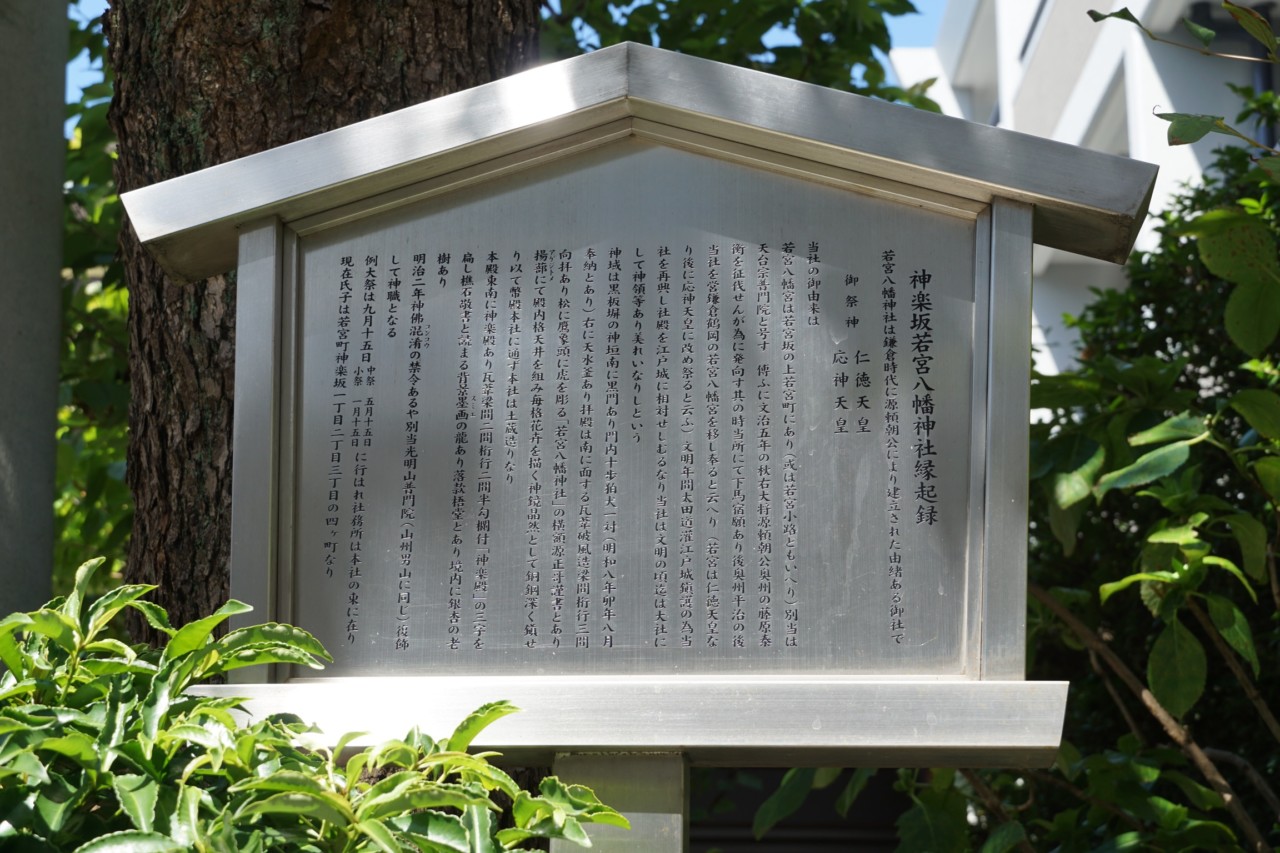 神楽坂若宮八幡神社縁起録
若宮八幡神社は鎌倉時代に源頼朝公により建立された由緒ある御社で
御祭神 仁徳天皇
応神天皇
当社の御由来は
若宮八幡宮は若宮坂の上若宮町にあり(或は若宮小路ともいへり)別当は
天台宗普門院と号す 傅ふに文治五年の秋右大将源頼朝公奥州の藤原泰
衡を征伐せんが為に発向す其の時当所にて下馬宿願あり後奥州平治の後
当社を宮鎌倉鶴岡の若宮八幡宮を移し奉ると云へり(若宮は仁徳天皇な
り後に応神天皇に改め祭ると云ふ)文明年間太田道灌江戸城鎮護の為当
社を再興し社殿を江戸城に相対せしむるなり当社は文明の頃迄は大社に
して神領等あり美れいなりしという
神域は黒板塀の神垣南に黒門あり門内十歩狛犬一対(明和八年卯年八月
奉納とあり)右に天水釜あり拝殿は南に面する瓦葺破風造梁間桁行三間
向拝あり松に鷹象頭に虎を彫る「若宮八幡神社」の横額源正謹書とあり
揚蔀にて殿内格天井を組み毎格花卉を描く神鏡晶然として銅鋼深く鎮せ
り以て幣殿本社に通ず本社は土蔵造りなり
本殿東南に神楽殿あり瓦葺梁間二間桁行二間半勾欄付「神楽殿」の三字を
扁し樵石敬書と読まる背景墨画の龍あり落款悟堂とあり境内に銀杏の老
樹あり
明治二年神佛混淆の禁令あるや別当光明山普門院(山州男山に同じ)復飾
コンコウ
して神職となる
例大祭は九月十五日中祭 五月十五日小祭 一月十五日に行はれ社務所は本社の東に在り
現在氏子は若宮町神楽坂一丁目二丁目三丁目の四ヶ町なり